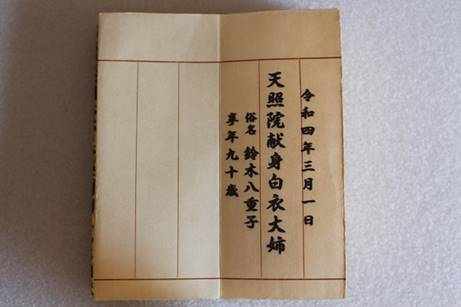 令和四年三月一日
天照院献身白衣大姉
俗名 鈴木八重子
享年九十歳